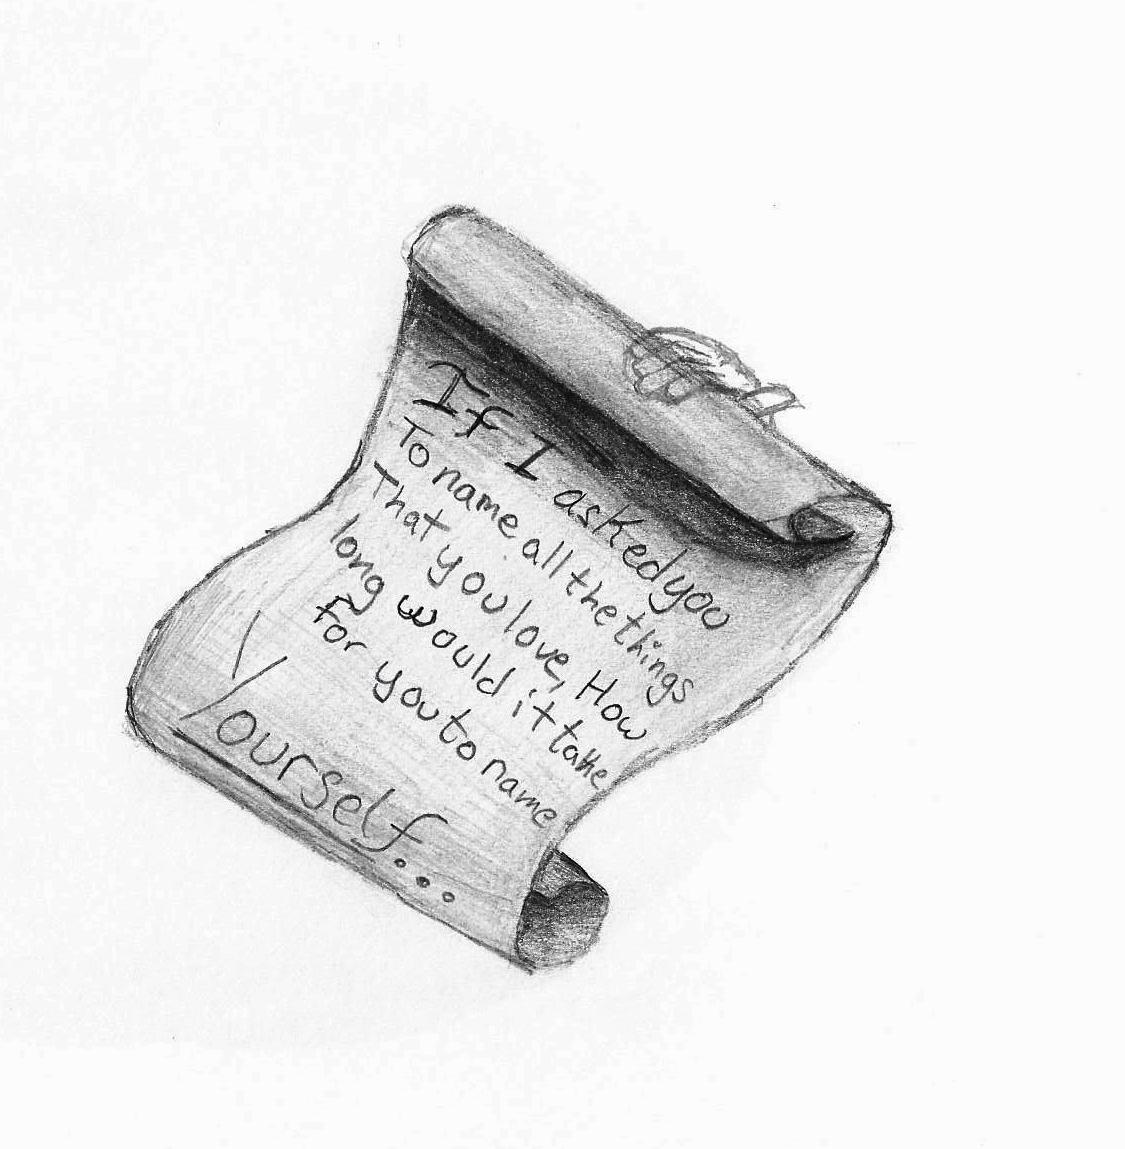 If I asked you
To name all the things
That you love, How
long would it take
For you to name
Yourself...